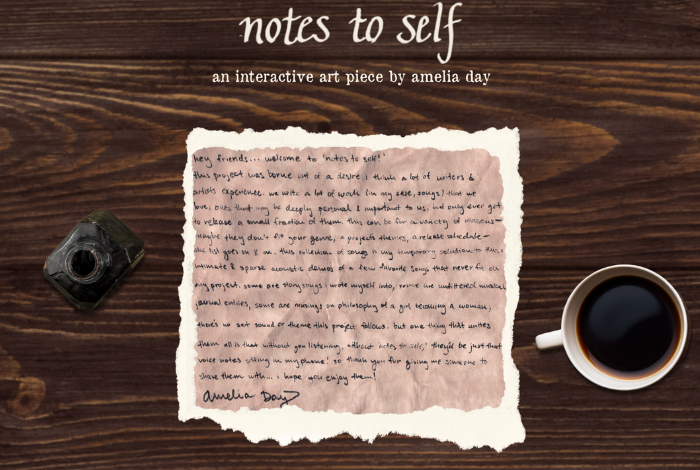 notes to self
an interactive art piece by amelia day
hey friends... welcome to 'notes to self!'
this project was borne out of a desire i think a lot of writers &
artists experience. we write a lot of work (in my case, songs) that we
love, ones that may be deeply personal & important to us, but only ever get
to release a small fraction of them. this can be for a variety of reasons—
maybe they don't fit your genre, a project's themes, a release schedule—
the list goes on & on. this collection of songs is my temporary solution to this:
intimate & sparse acoustic demos of a few favorite songs that never fit on
any project. some are story songs i wrote myself into, some are unfiltered musical
journal entries, some are musings on philosophy of a girl becoming a woman.
there's no set sound or theme this project follows. but one thing that unites
them all is that without you listening, without 'notes to self,' they'd be just that
voice notes sitting in my phone! so thank you for giving me someone to
share them with... i hope you enjoy them!
Amelia Day